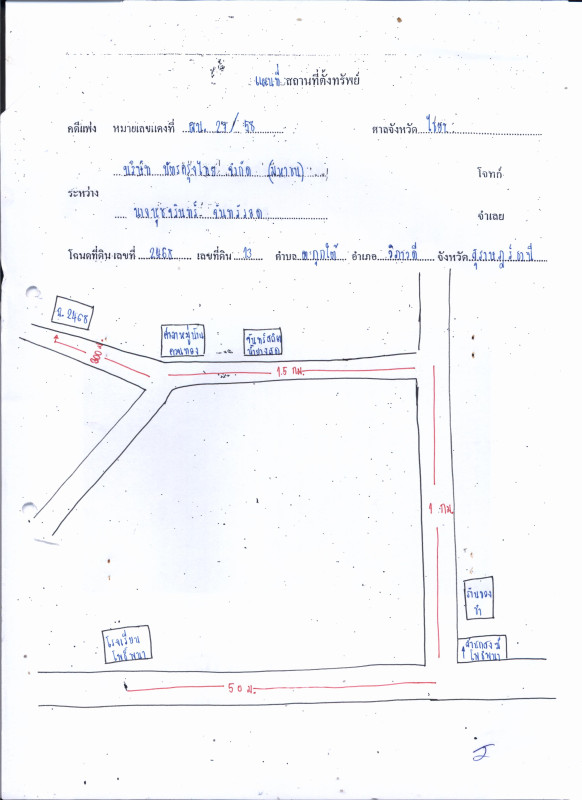 แผนที่ สถานที่ตั้งทรัพย์
คดีแพ่ง หมายเลขแดงที่ ผบ. 29 / 58 ศาลจังหวัด ไชยา
บริษัท บัตรกรุงไทย จำกัด (มหาชน) โจทก์
ระหว่าง
จำเลย
โฉนดที่ดิน เลขที่ 2468 เลขที่ดิน 13 ตำบล ตะกุกใต้ อำเภอ วิภาวดี จังหวัด สุราษฎร์ธานี
ฉ. 2468
ศาลาหมู่บ้าน
300
1.5 กม.
1 กม.
โรงเรียน
50 ม.